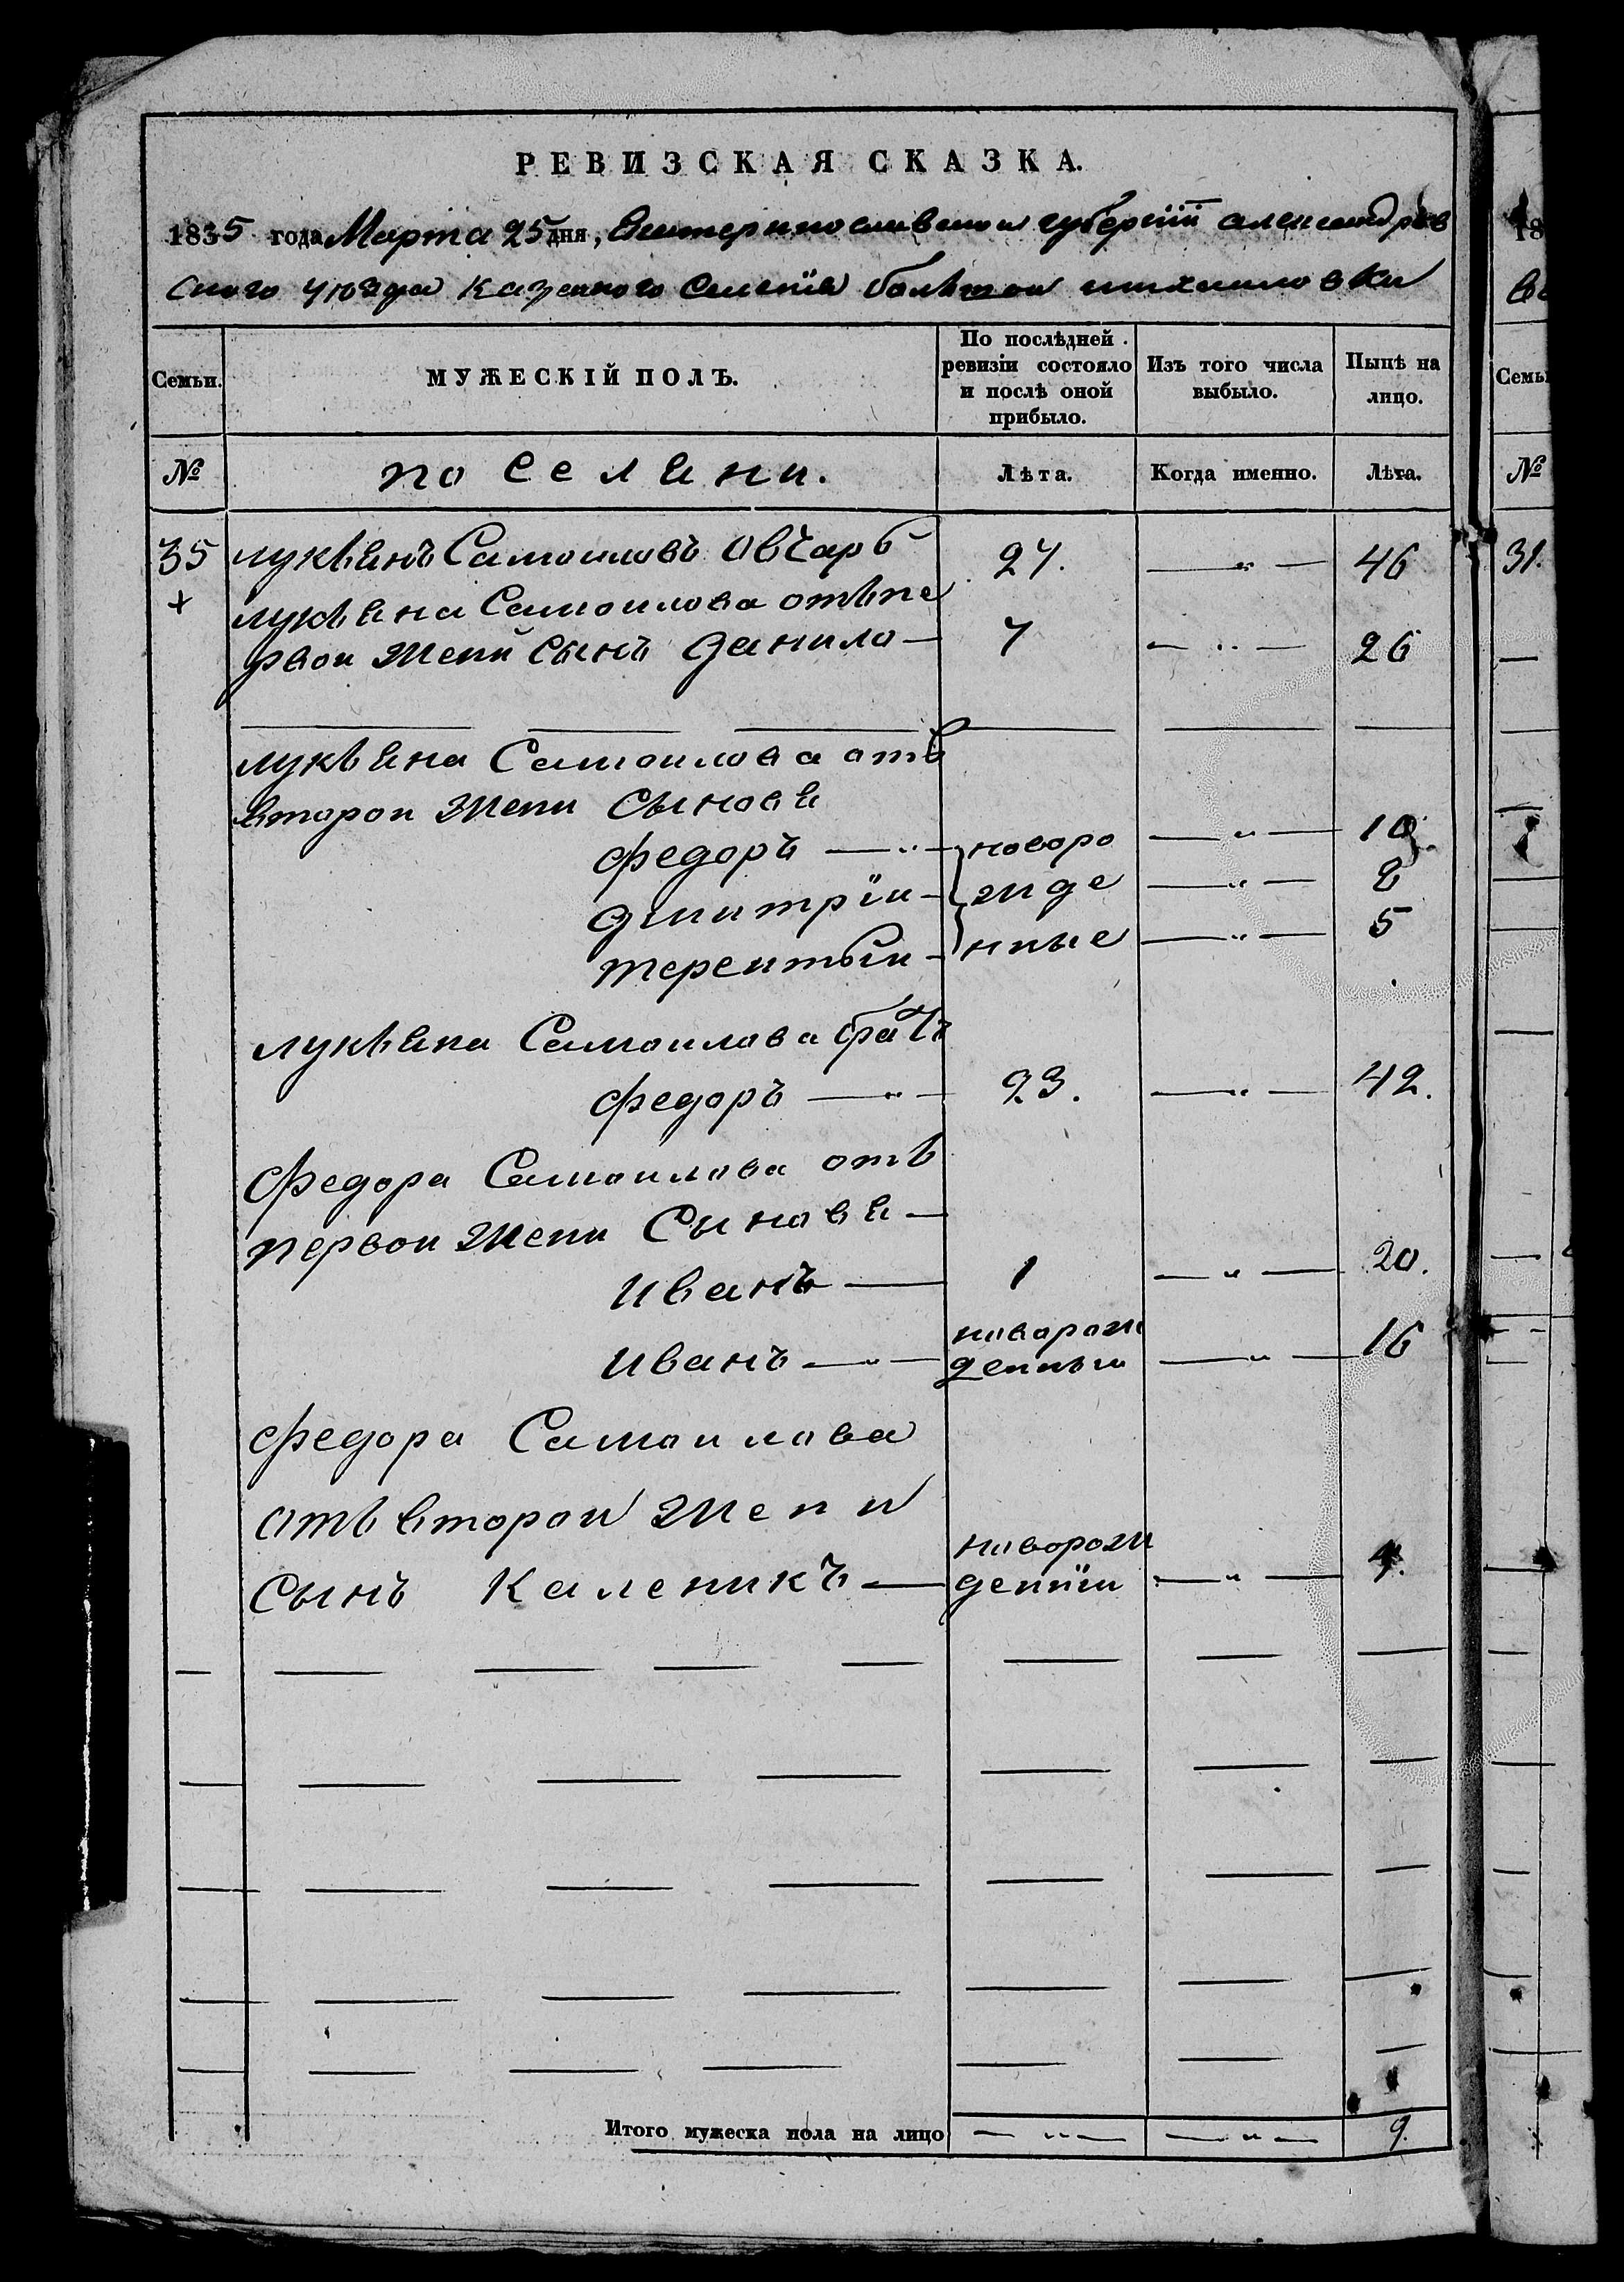 РЕВИЗСКАЯ СКАЗКА.
1835 года Марта 25 дня, Екатеринославской губернiи александров
ского уезда казенного Селенiя большой михаиловки
Семьи. МУЖЕСКІЙ ПОЛЪ. По послѣдней ревизіи состояло и послѣ оной прибыло. Изъ того числа выбыло. Нынѣ на лицо.
№ поселяни. Лѣта. Когда именно. Лѣта.
35 лукьянъ Самоиловъ Овчарь 27. — " — 46
+ лукьяна Самоилова отъ пе
рвои жени Сынъ данило — 7 — " — 26
лукьяна Самоилова отъ
второи жени Сыновя
федоръ — " — новоро — " — 10
дмитрiи — жде — " — 8
терентьи — нные — " — 5
лукьяна Самоилова братъ
федоръ — " — 23. — " — 42.
федора Самоилова отъ
первои жени Сыновя —
иванъ — 1 — " — 20.
иванъ — " — новорож
денныи — " — 16
федора Самоилова
отъ второи жени
Сынъ каленикъ — новорож
деннiи — " — 4.
Итого мужеска пола на лицо — " — — " — 9.
18
Семьи
№
31.